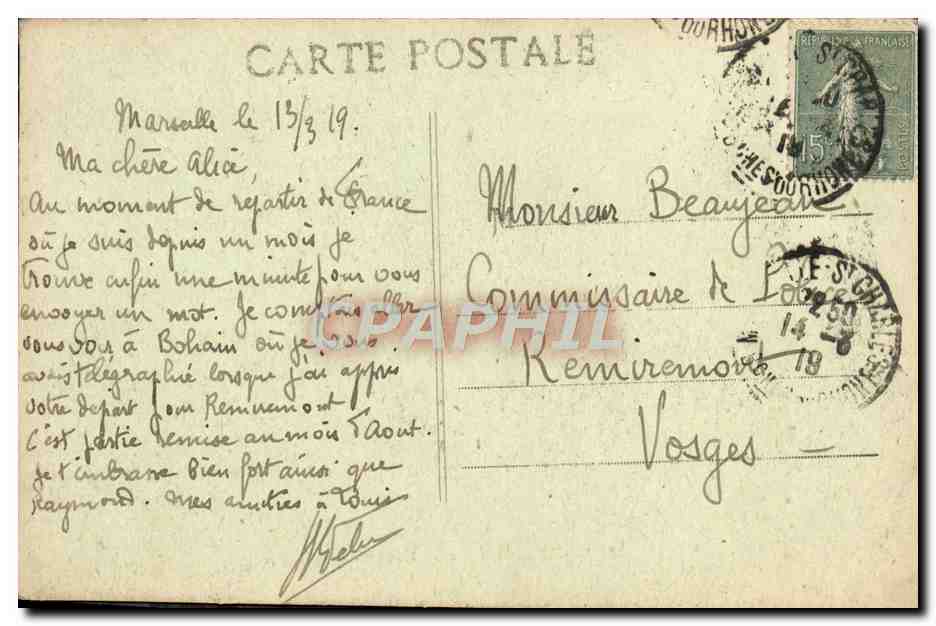 CARTE POSTALE
Marseille le 13/3 19.
Ma chère Alice,
Au moment de repartir de France
où je suis depuis un mois je
trouve enfin une minute pour vous
envoyer un mot. Je comptais aller
vous voir à Bohain où je vous
avais télégraphié lorsque j'ai appris
votre départ pour Remiremont
C'est partie remise au mois d'Aout.
Je t'embrasse bien fort ainsi que
Raymond. Mes amitiés à Louis
Monsieur Beaujean
Commissaire de Police
Remiremont
Vosges
REPUBLIQUE FRANÇAISE
15
POSTES
DU RHONE
ST CHARLES
BCHES DU RHONE
ST CHARLES
22 50
14 - 3
19
CPAPHIL